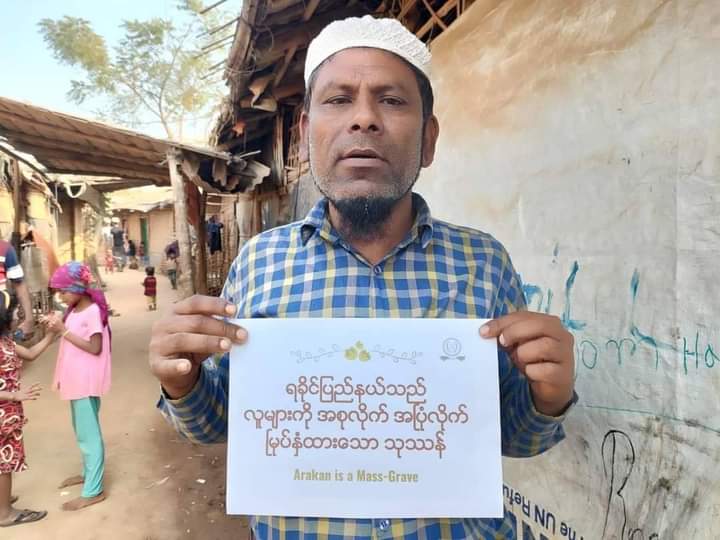 ရခိုင်ပြည်နယ်သည်
လူများကို အစုလိုက် အပြုံလိုက်
မြုပ်နှံထားသော သုဿန်
Arakan is a Mass-Grave
The UN Refu